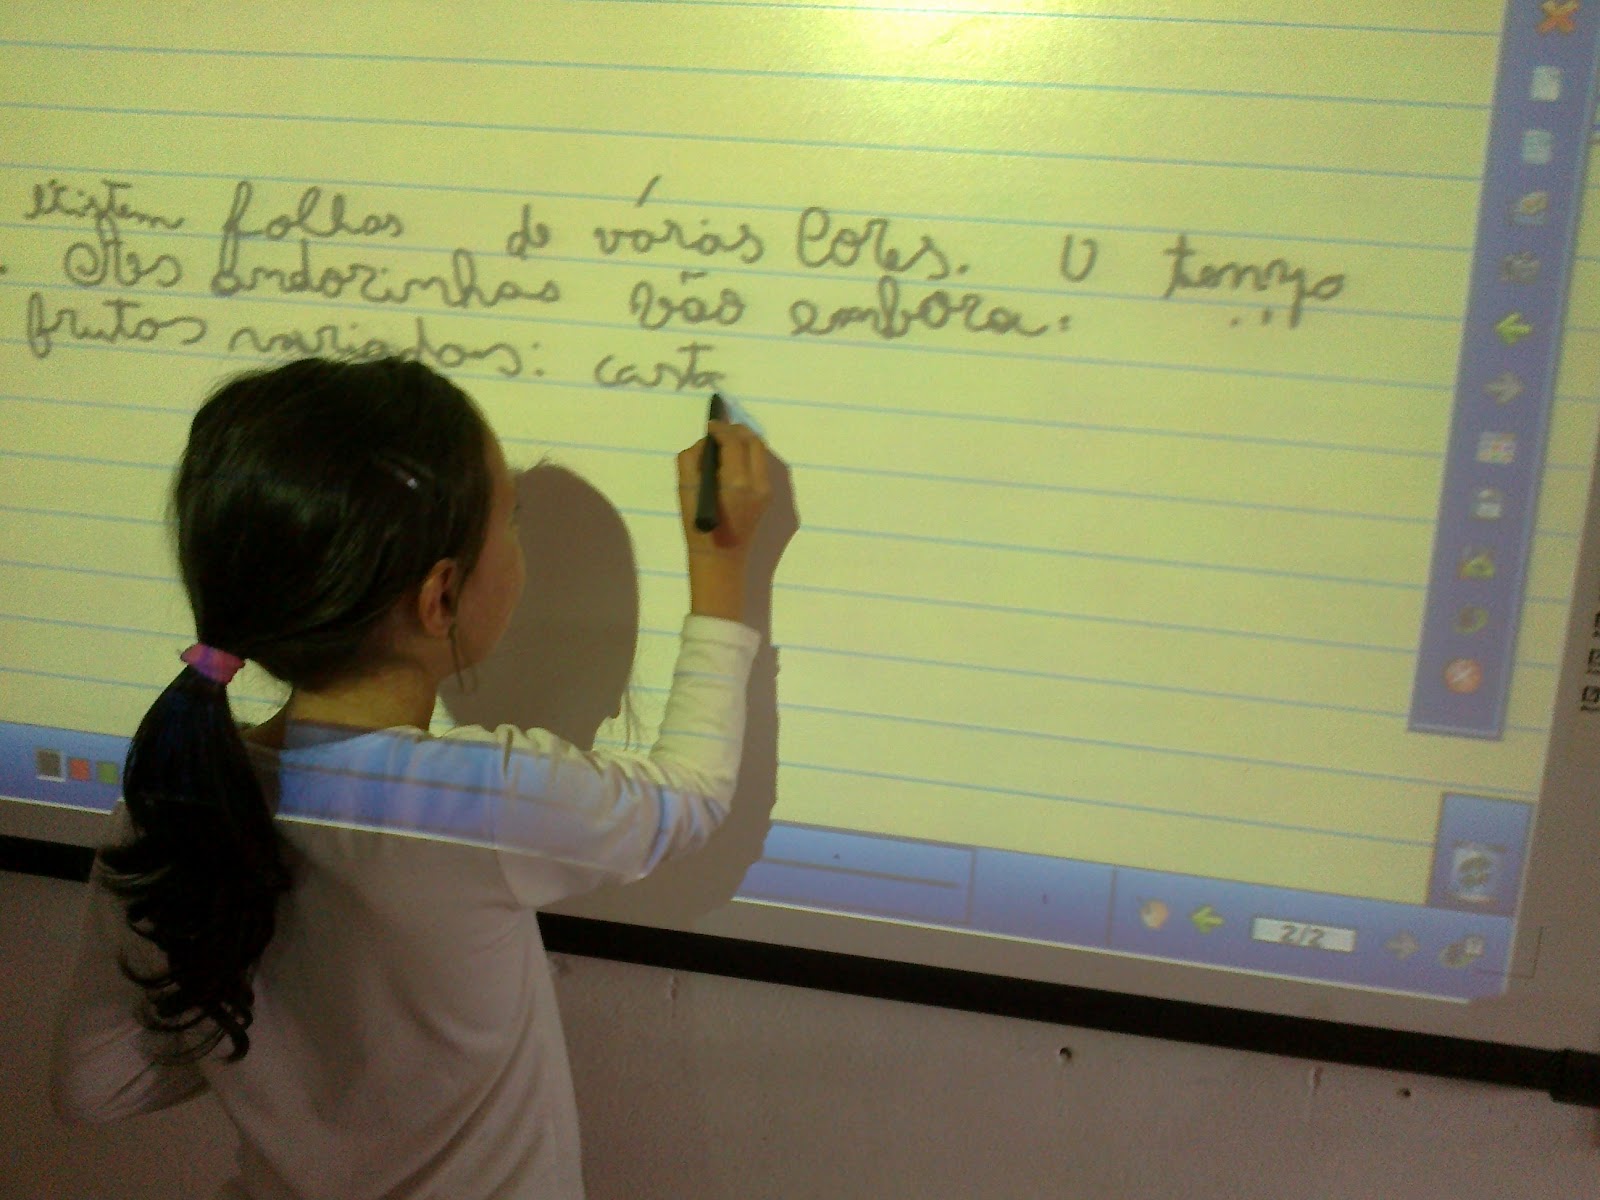 existem folhas de várias cores. O tempo
. As andorinhas vão embora.
frutos variados: casta
2/2